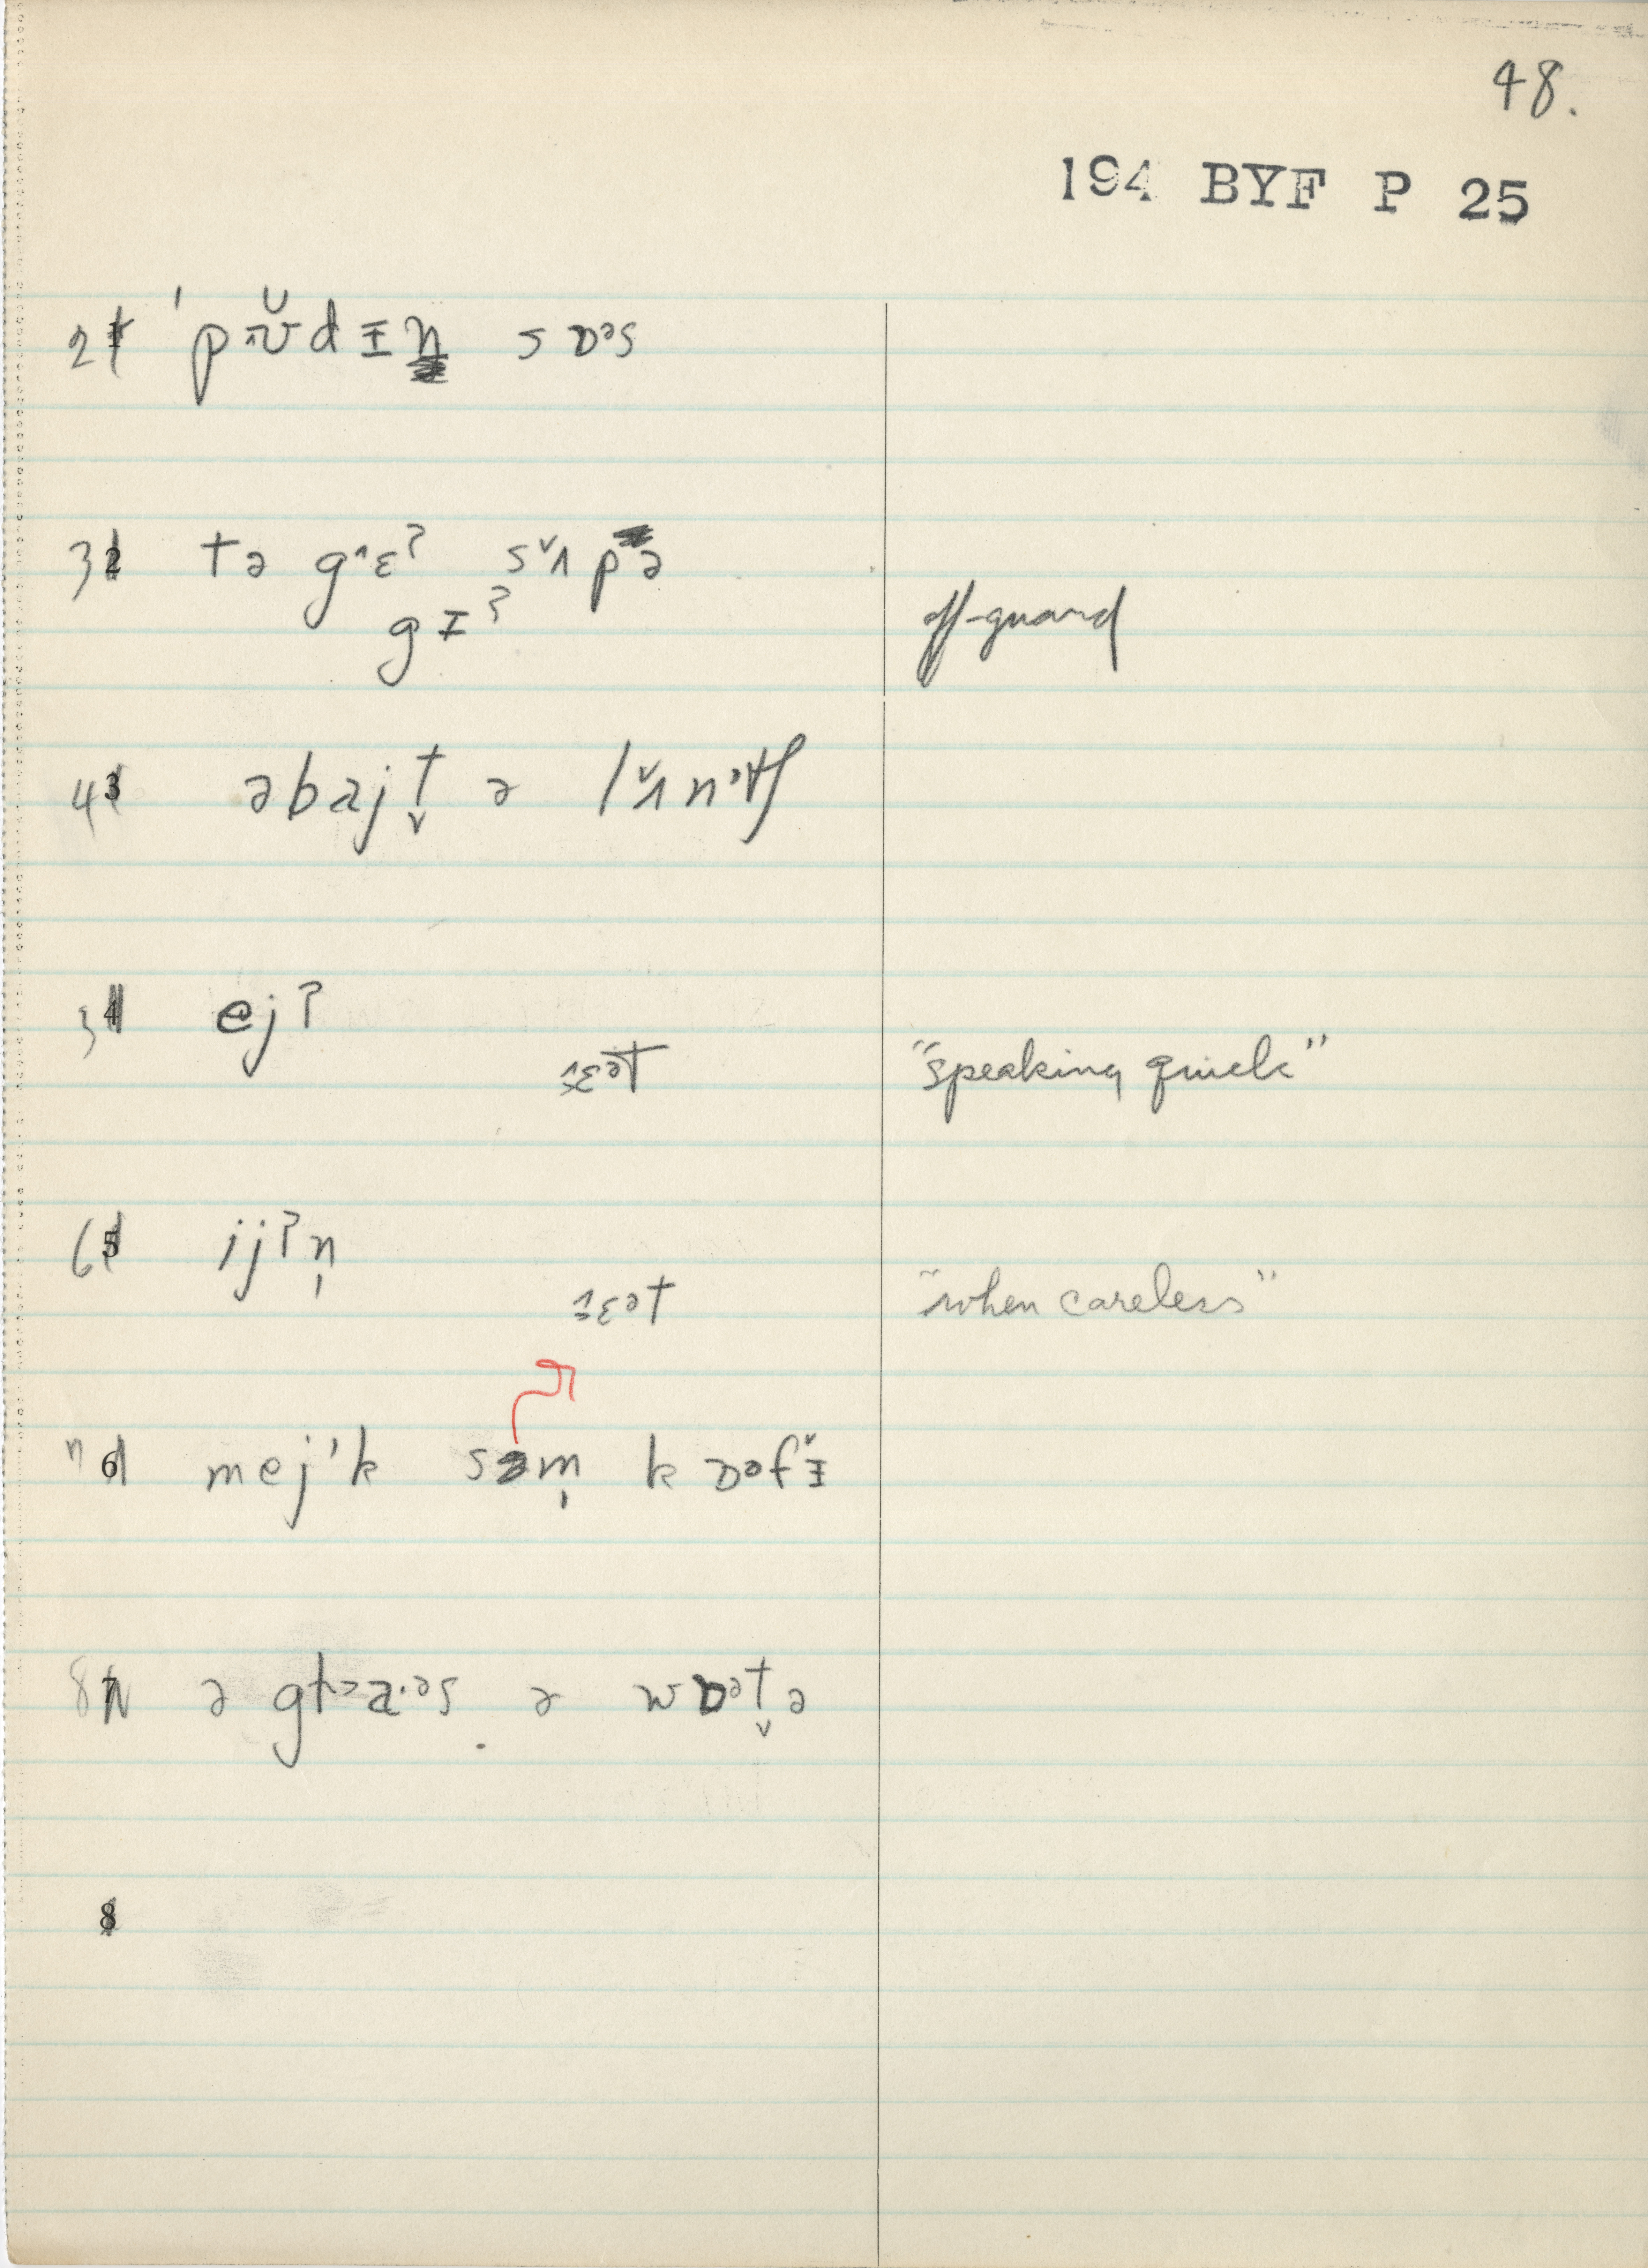 48.
194 BYF P 25
2 1 ˈpʊ̆dɪn sɒᵊs
3 2 tə gɛˀ sʌpə
gɪˀ off-guard
4 3 əbajt̬ ə lʌnᵊtʃ
3 4 ejʔ
ɛᵊt "speaking quick"
6 5 ijʔn̩
ɛᵊt "when careless"
7 6 mejˈk səm̩ kɒᵊfɪ̌
8 7 ə gl a·ᵊs ə wɒᵊt̬ə
8